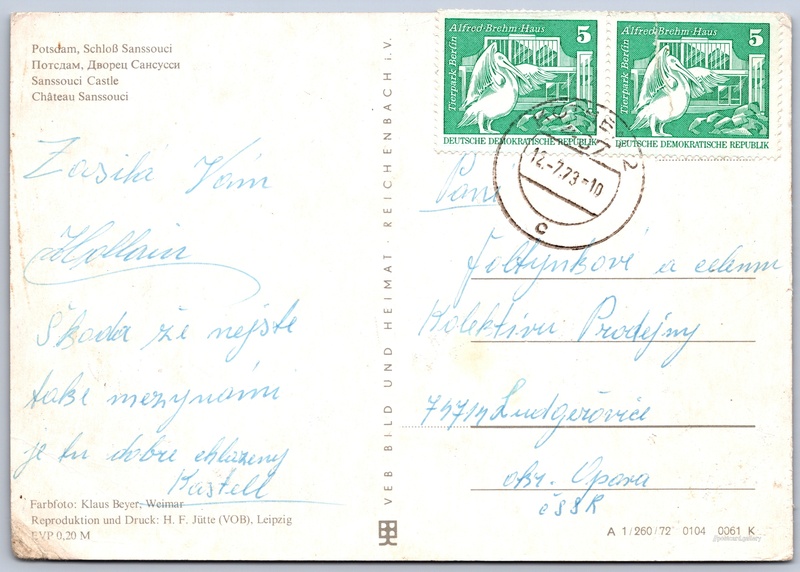 Potsdam, Schloß Sanssouci
Потсдам, Дворец Сансусси
Sanssouci Castle
Château Sanssouci
Zasílá Vám
Škoda že nejste
také mezi námi
je tu dobře chlazený
Kastell
Farbfoto: Klaus Beyer, Weimar
Reproduktion und Druck: H. F. Jütte (VOB), Leipzig
EVP 0,20 M
VEB BILD UND HEIMAT · REICHENBACH i. V.
Alfred-Brehm-Haus
5
Tierpark Berlin
DEUTSCHE DEMOKRATISCHE REPUBLIK
Alfred-Brehm-Haus
5
Tierpark Berlin
DEUTSCHE DEMOKRATISCHE REPUBLIK
12.-7.73-10
c
Paní
Foltýnkové a celému
Kolektivu Prodejny
74714 Ludgeřovice
okr. Opava
ČSSR
A 1/260/72 0104 0061 K